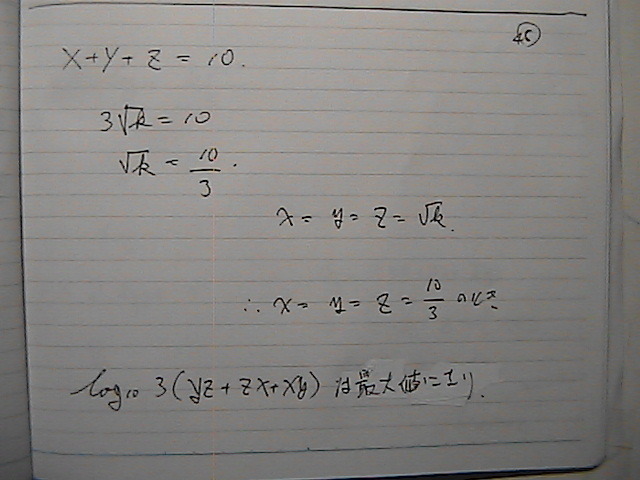 45
X+Y+Z = 10.
3√k = 10
√k = 10/3.
x = y = z = √k.
∴ x = y = z = 10/3 のとき
log₁₀ 3(yz + zx + xy) は最大値に